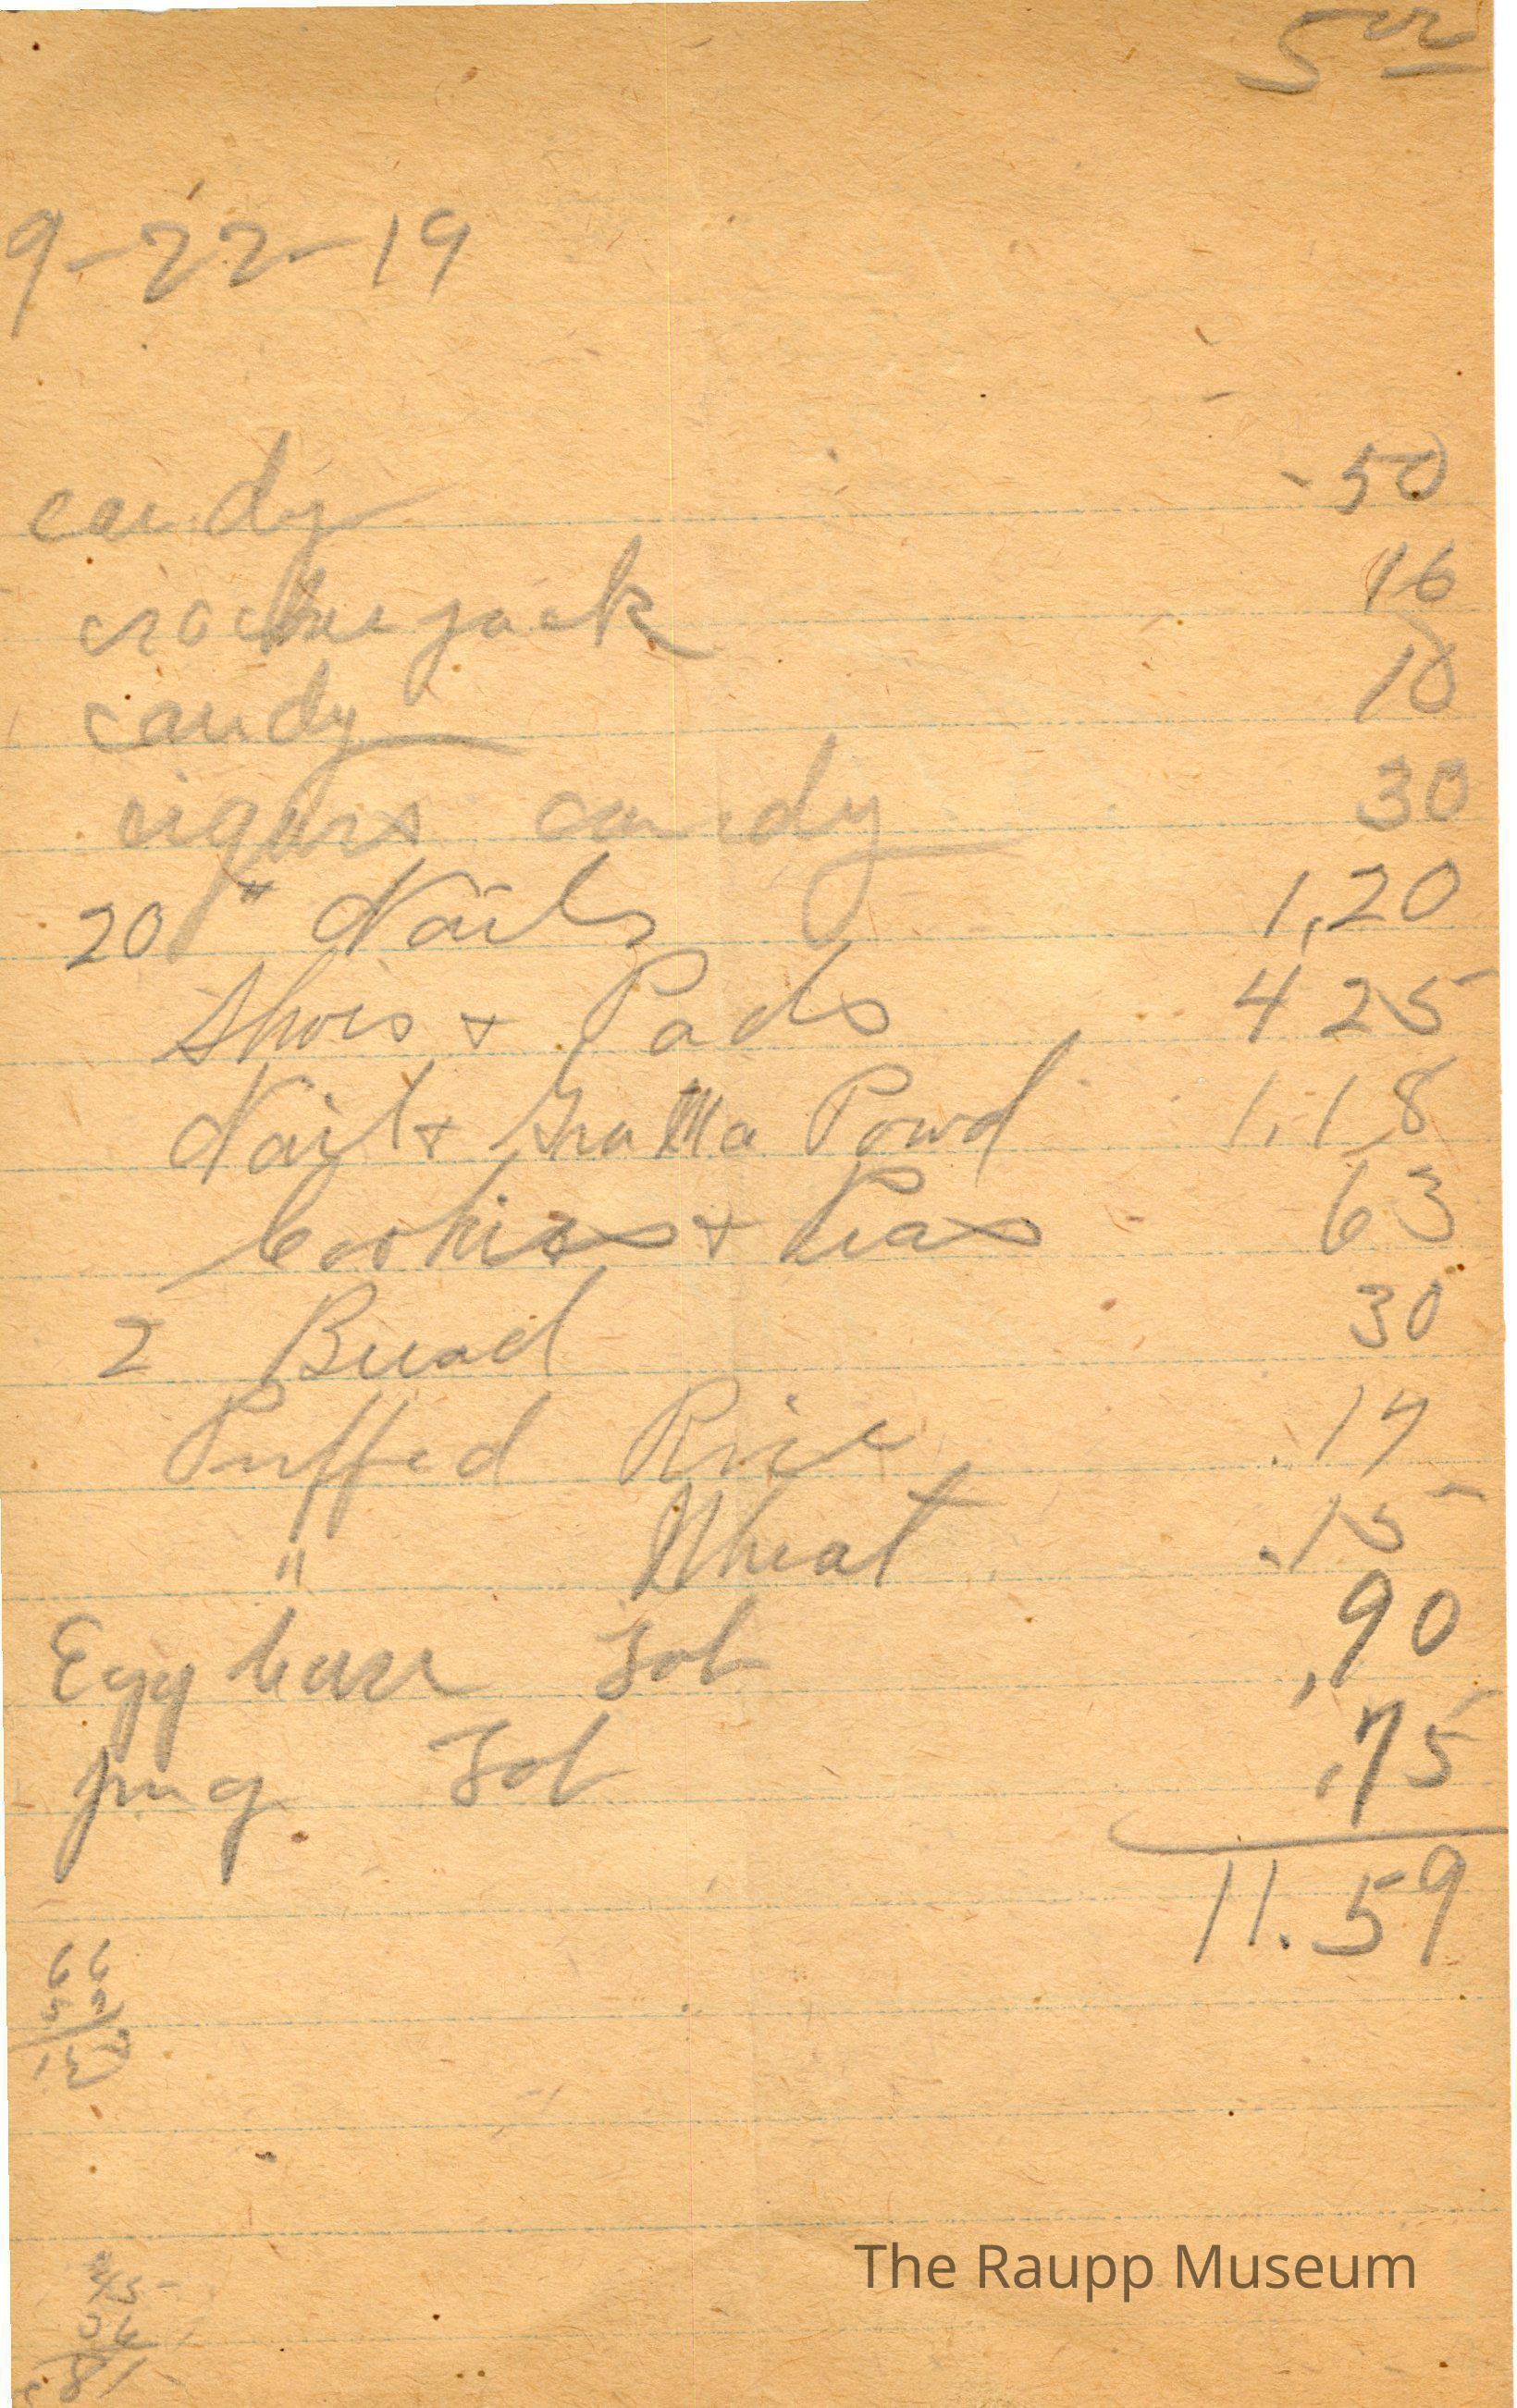 5 00
9-22-19
candy -50
crackerjack 16
candy 10
cigars candy 30
20 " Nails 1,20
Shoes + Pads 4 25
Nail + Powd 1,18
Cookies + Peas 63
2 Bread 30
Puffed Rice .17
" Wheat .15
Egg .90
.75
11.59
66
81
The Raupp Museum